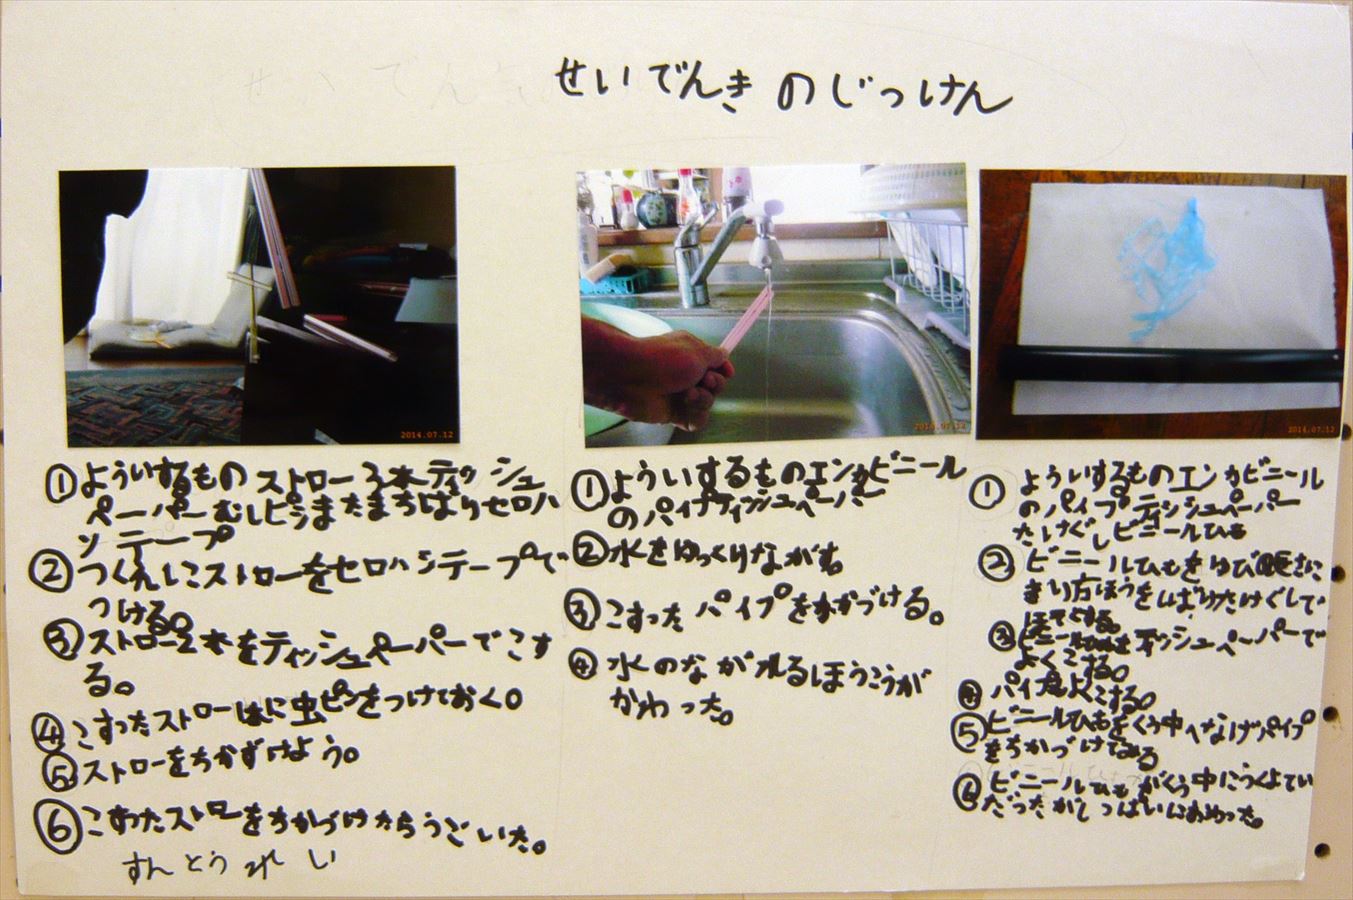 せいでんきのじっけん
2014.07.12
①よういするものストロー3本ティッシュ
ペーパーむしピンまたまちばりセロハ
ンテープ
②つくえにストローをセロハンテープで
つける。
③ストロー2本をティッシュペーパーでこす
る。
④こすったストローはに虫ピンをつけておく。
⑤ストローをちかずけよう。
⑥こすたストローをちかづけたらうごいた。
すんとうれい
2014.07.12
①よういするものエンカビニール
のパイプティッシュペーパー
②水をゆっくりながす。
③こすったパイプをちかづける。
④水のながれるほうこうが
かわった。
2014.07.12
①よういするものエンカビニール
のパイプティッシュペーパー
たけぐしビニールひも
②ビニールひもをゆび
きり方ほうをしばりたけぐしで
③ビニールひもをティッシュペーパーで
よくこする。
④パイプもよくこする。
⑤ビニールひもをくう中へなげパイプ
をちかづけてみる
⑥ビニールひもがくう中にうくよてい
だったがしっぱいにおわった。